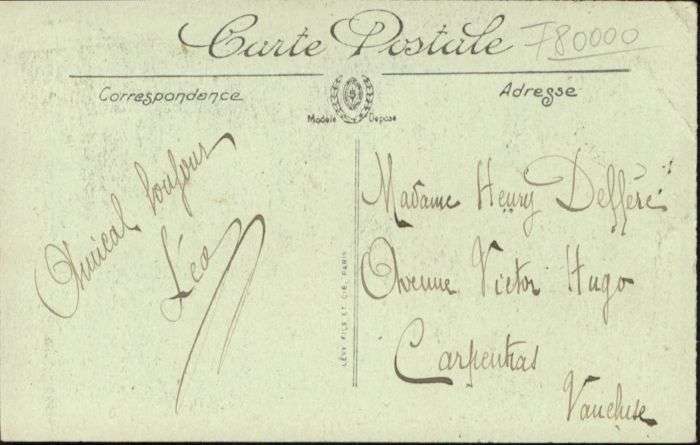 Carte Postale
F80000
Correspondance
Adresse
Modèle Déposé
Amical bonjour
Léo
Madame Henry Defféré
Avenue Victor Hugo
Carpentras
Vaucluse
LÉVY FILS ET CIE, PARIS